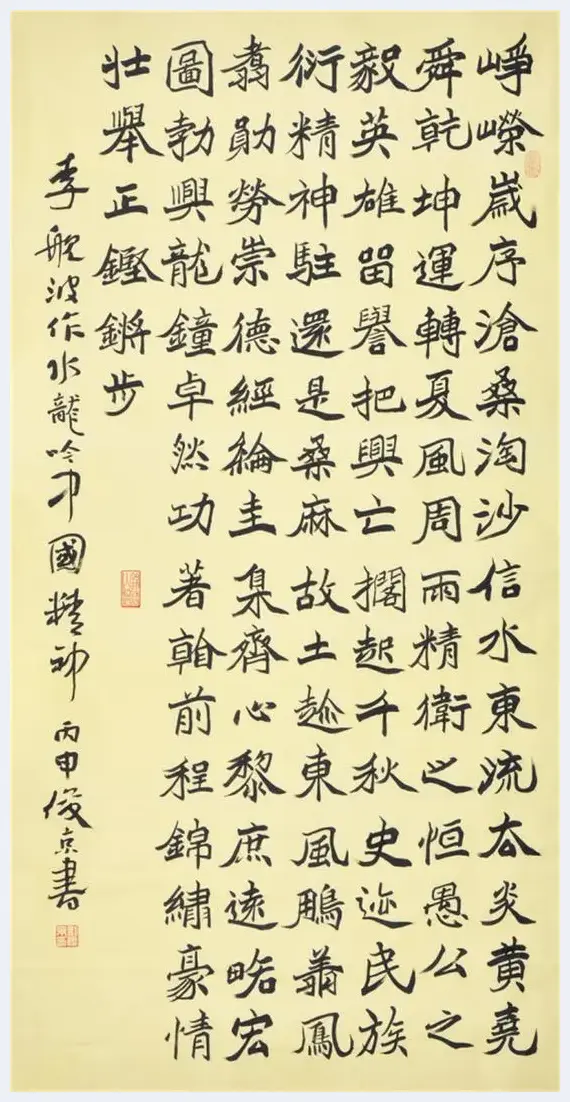 崢嶸歲序滄桑淘沙信水東流去炎黃堯
舜乾坤運轉夏風周雨精衛之恒愚公之
毅英雄留譽把興亡擱起千秋史迹民族
衍精神駐還是桑麻故土趁東風鵬翔鳳
翥勛勞崇德經綸圭臬齊心黎庶遠略宏
圖勃興龍鐘卓然功著前程錦繡豪情
壯舉正鏗鏘步
李波作水龍吟中國精神丙申俊京書